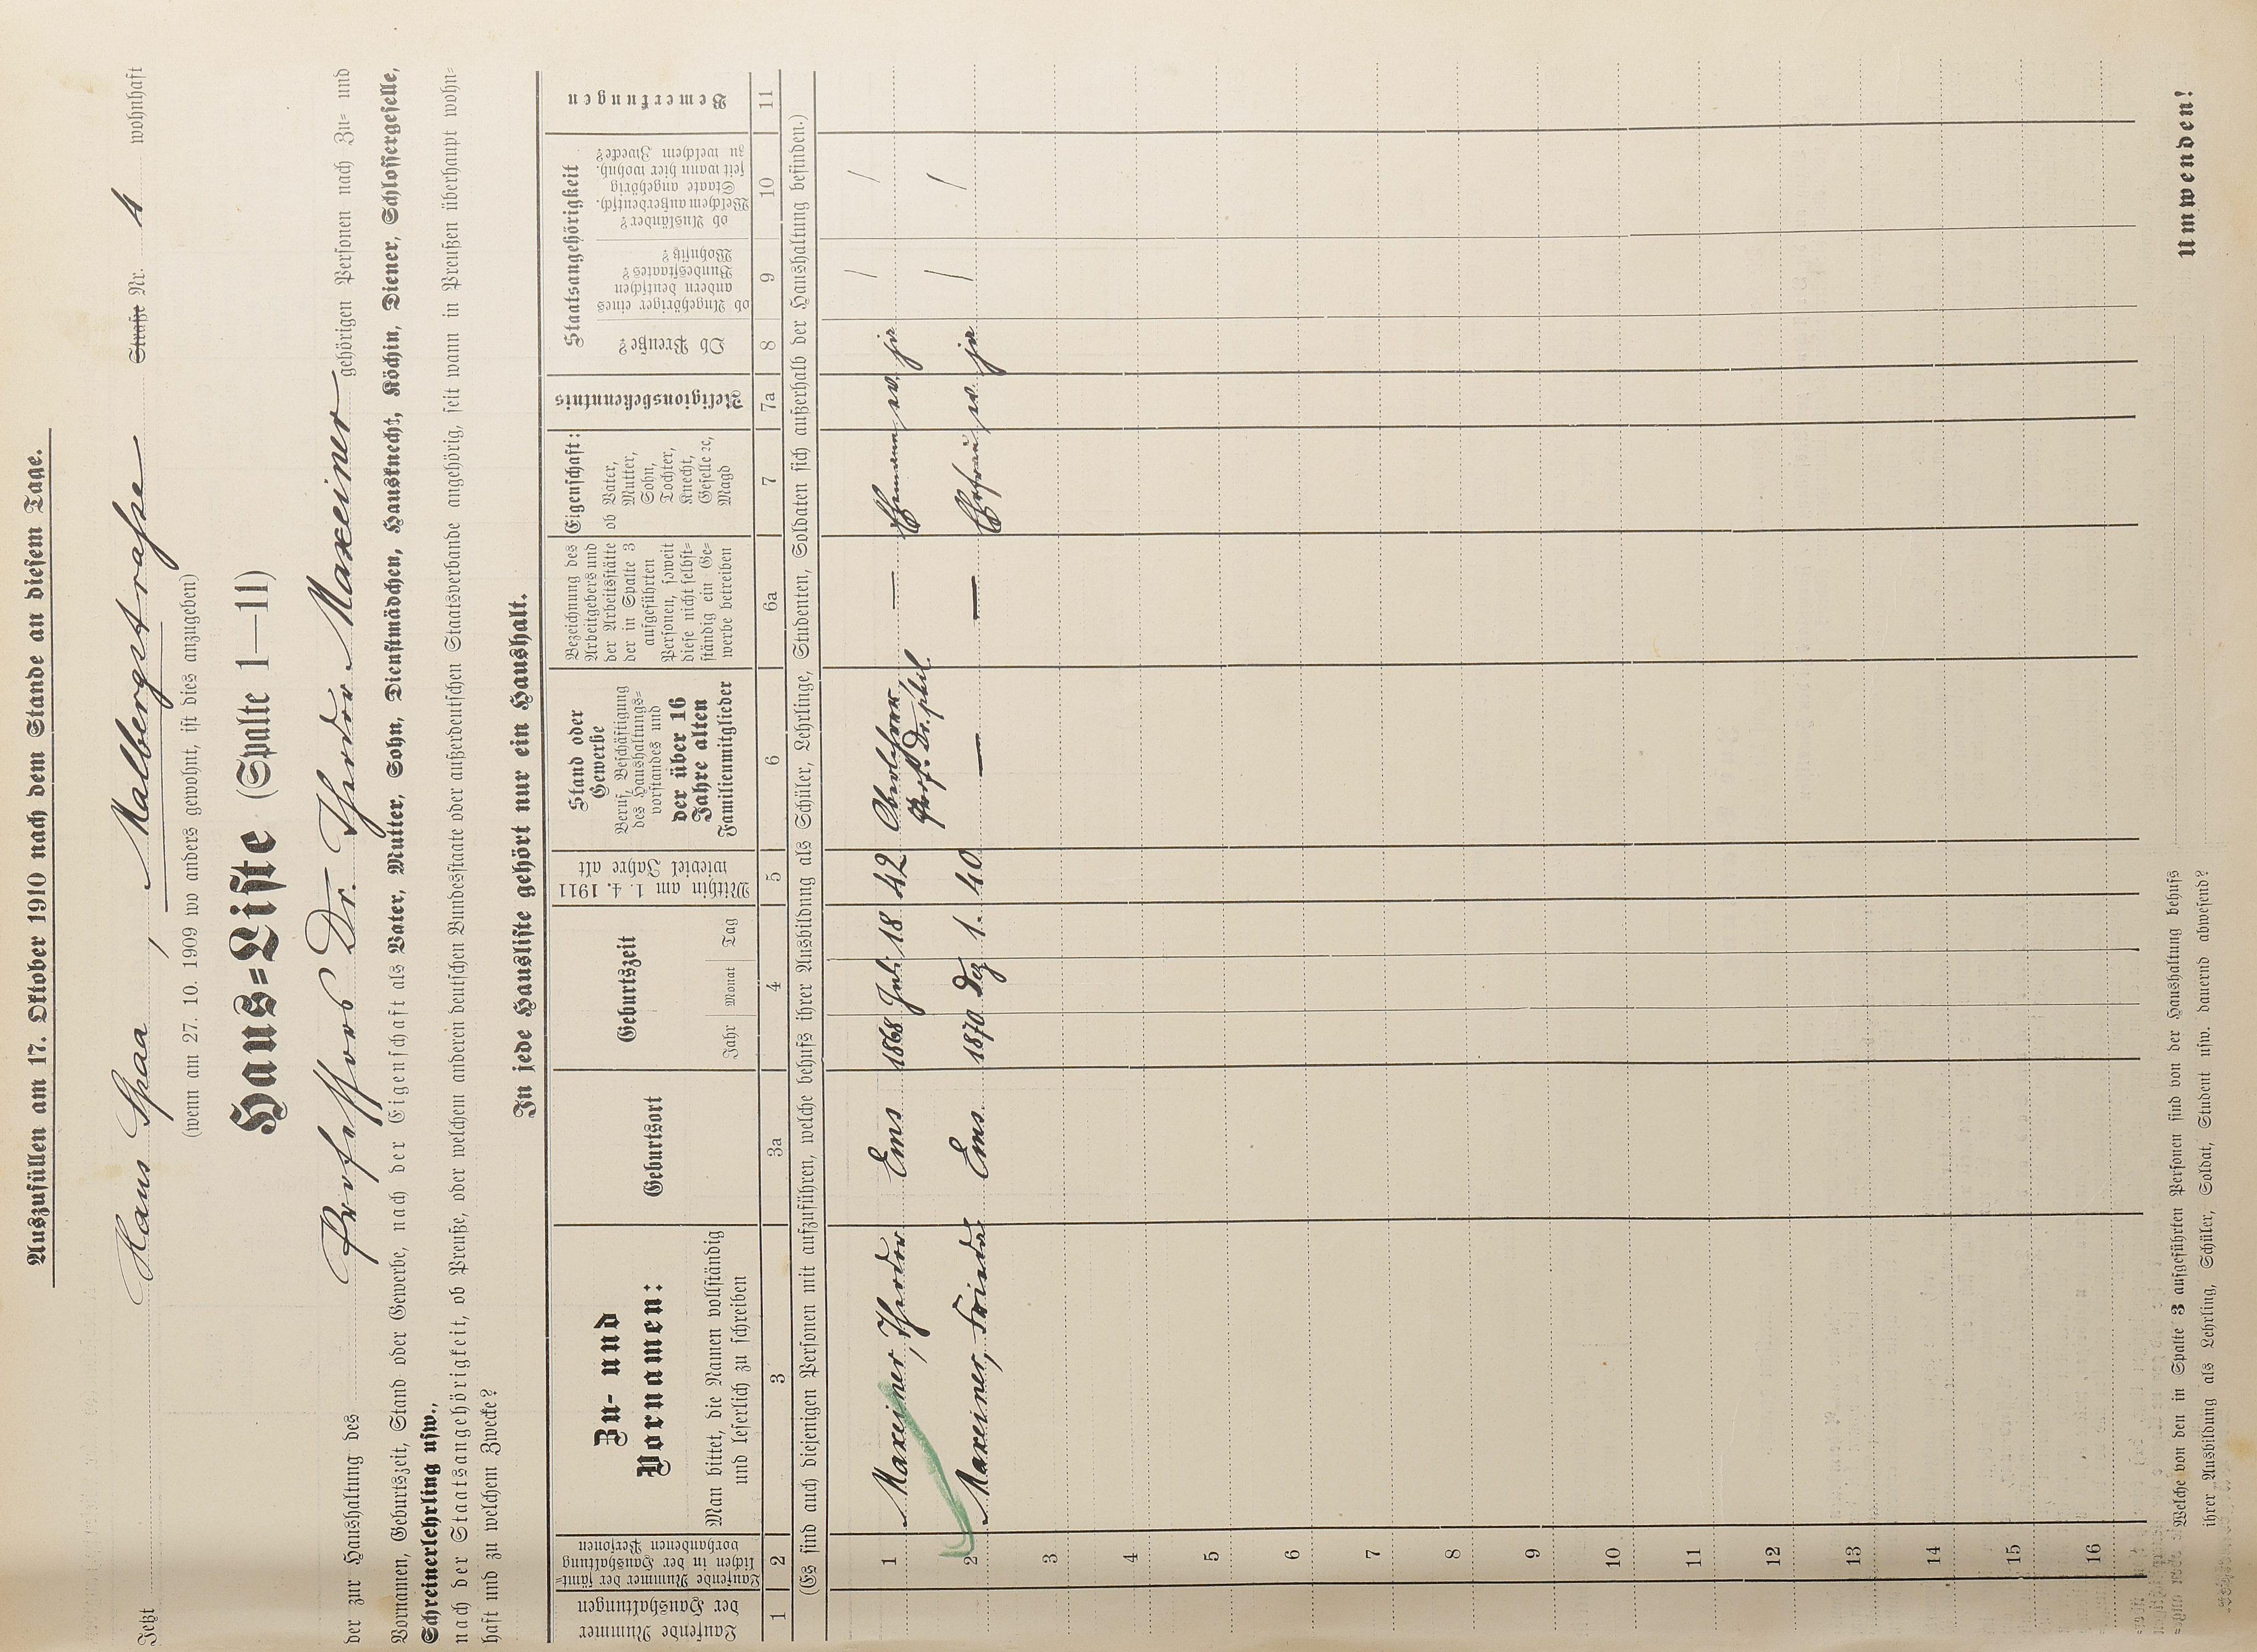 Auszufüllen am 17. Oktober 1910 nach dem Stande an diesem Tage.
Jetzt Haus Spaa, Malbergstraße Straße Nr. 4 wohnhaft
(wenn am 27. 10. 1909 wo anders gewohnt, ist dies anzugeben)
Haus=Liste (Spalte 1—11)
der zur Haushaltung des Professors Dr. Theodor Maxeiner gehörigen Personen nach Zu= und
Vornamen, Geburtszeit, Stand oder Gewerbe, nach der Eigenschaft als Vater, Mutter, Sohn, Dienstmädchen, Hausknecht, Köchin, Diener, Schlossergeselle,
Schreinerlehrling usw.,
nach der Staatsangehörigkeit, ob Preuße, oder welchem anderen deutschen Bundesstaate oder außerdeutschen Staatsverbande angehörig, seit wann in Preußen überhaupt wohn=
haft und zu welchem Zwecke?
In jede Hausliste gehört nur ein Haushalt.
Laufende Nummer
der Haushaltungen
Laufende Nummer der sämt=
lichen in der Haushaltung
vorhandenen Personen
Zu- und
Vornamen:
Man bittet, die Namen vollständig
und leserlich zu schreiben
Geburtsort
Geburtszeit
Jahr Monat Tag
Mithin am 1. 4. 1911
wieviel Jahre alt
Stand oder
Gewerbe
Beruf, Beschäftigung
des Haushaltungs=
vorstandes und
der über 16
Jahre alten
Familienmitglieder
Bezeichnung des
Arbeitgebers und
der Arbeitsstätte
der in Spalte 3
aufgeführten
Personen, soweit
diese nicht selbst=
ständig ein Ge=
werbe betreiben
Eigenschaft:
ob Vater,
Mutter,
Sohn,
Tochter,
Knecht,
Geselle ꝛc,
Magd
Religionsbekenntnis
Staatsangehörigkeit
Ob Preuße?
ob Angehöriger eines
andern deutschen
Bundesstaates?
Wohnsitz?
ob Ausländer?
Welchem außerdeutsch.
Staate angehörig
seit wann hier wohnh.
zu welchem Zwecke?
Bemerkungen
1 2 3 3a 4 5 6 6a 7 7a 8 9 10 11
(Es sind auch diejenigen Personen mit aufzuführen, welche behufs ihrer Ausbildung als Schüler, Lehrlinge, Studenten, Soldaten sich außerhalb der Haushaltung befinden.)
1 Maxeiner, Theodor Ems 1868 Juli 18 42 Oberlehrer, — Ehemann ev. ja / /
Prof. Dr. phil.
2 Maxeiner, Frieda Ems 1870 Dez 1. 40 — — Ehefrau ev. ja / /
3
4
5
6
7
8
9
10
11
12
13
14
15
16
Welche von den in Spalte 3 aufgeführten Personen sind von der Haushaltung behufs
ihrer Ausbildung als Lehrling, Schüler, Soldat, Student usw. dauernd abwesend?
Umwenden!